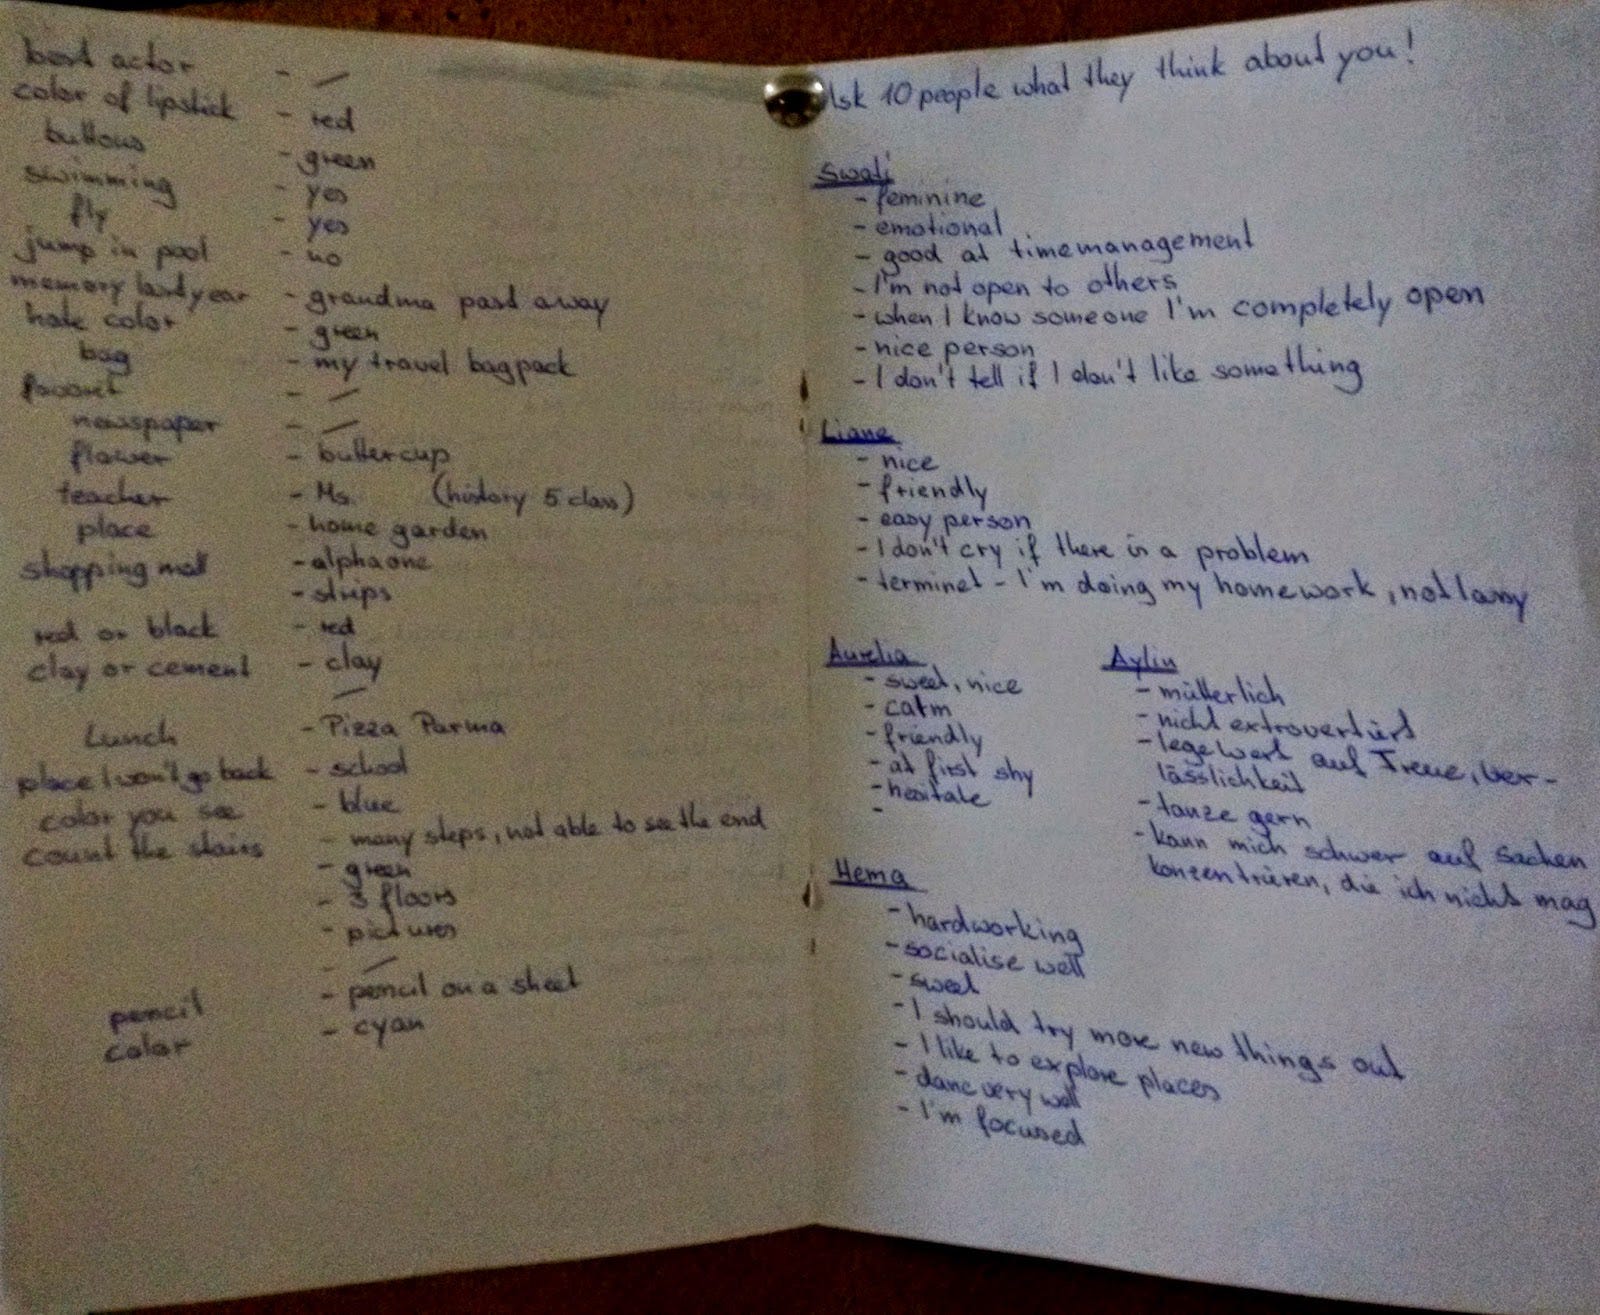 best actor - /
color of lipstick - red
buttons - green
swimming - yes
fly - yes
jump in pool - no
memory last year - grandma past away
hate color - green
bag - my travel bagpack
- /
newspaper - /
flower - buttercup
teacher - Ms. (history 5 class)
place - home garden
shopping mall - alphaone
- strips
red or black - red
clay or cement - clay
/
Lunch - Pizza Parma
place I won't go back - school
color you see - blue
count the stairs - many steps, not able to see the end
- green
- 3 floors
- pictures
- /
pencil - pencil on a sheet
color - cyan
Ask 10 people what they think about you!
Swati
- feminine
- emotional
- good at timemanagement
- I'm not open to others
- when I know someone I'm completely open
- nice person
- I don't tell if I don't like something
Liane
- nice
- friendly
- easy person
- I don't cry if there is a problem
- terminet - I'm doing my homework, not lazy
Aurelia
- sweet, nice
- calm
- friendly
- at first shy
- hesitate
-
Aylin
- mütterlich
- nicht extrovertiert
- lege wert auf Treue, Ver-
lässlichkeit
- tanze gern
- kann mich schwer auf Sachen
konzentrieren, die ich nicht mag
Hema
- hardworking
- socialise well
- sweet
- I should try more new things out
- I like to explore places
- danc very well
- I'm focused